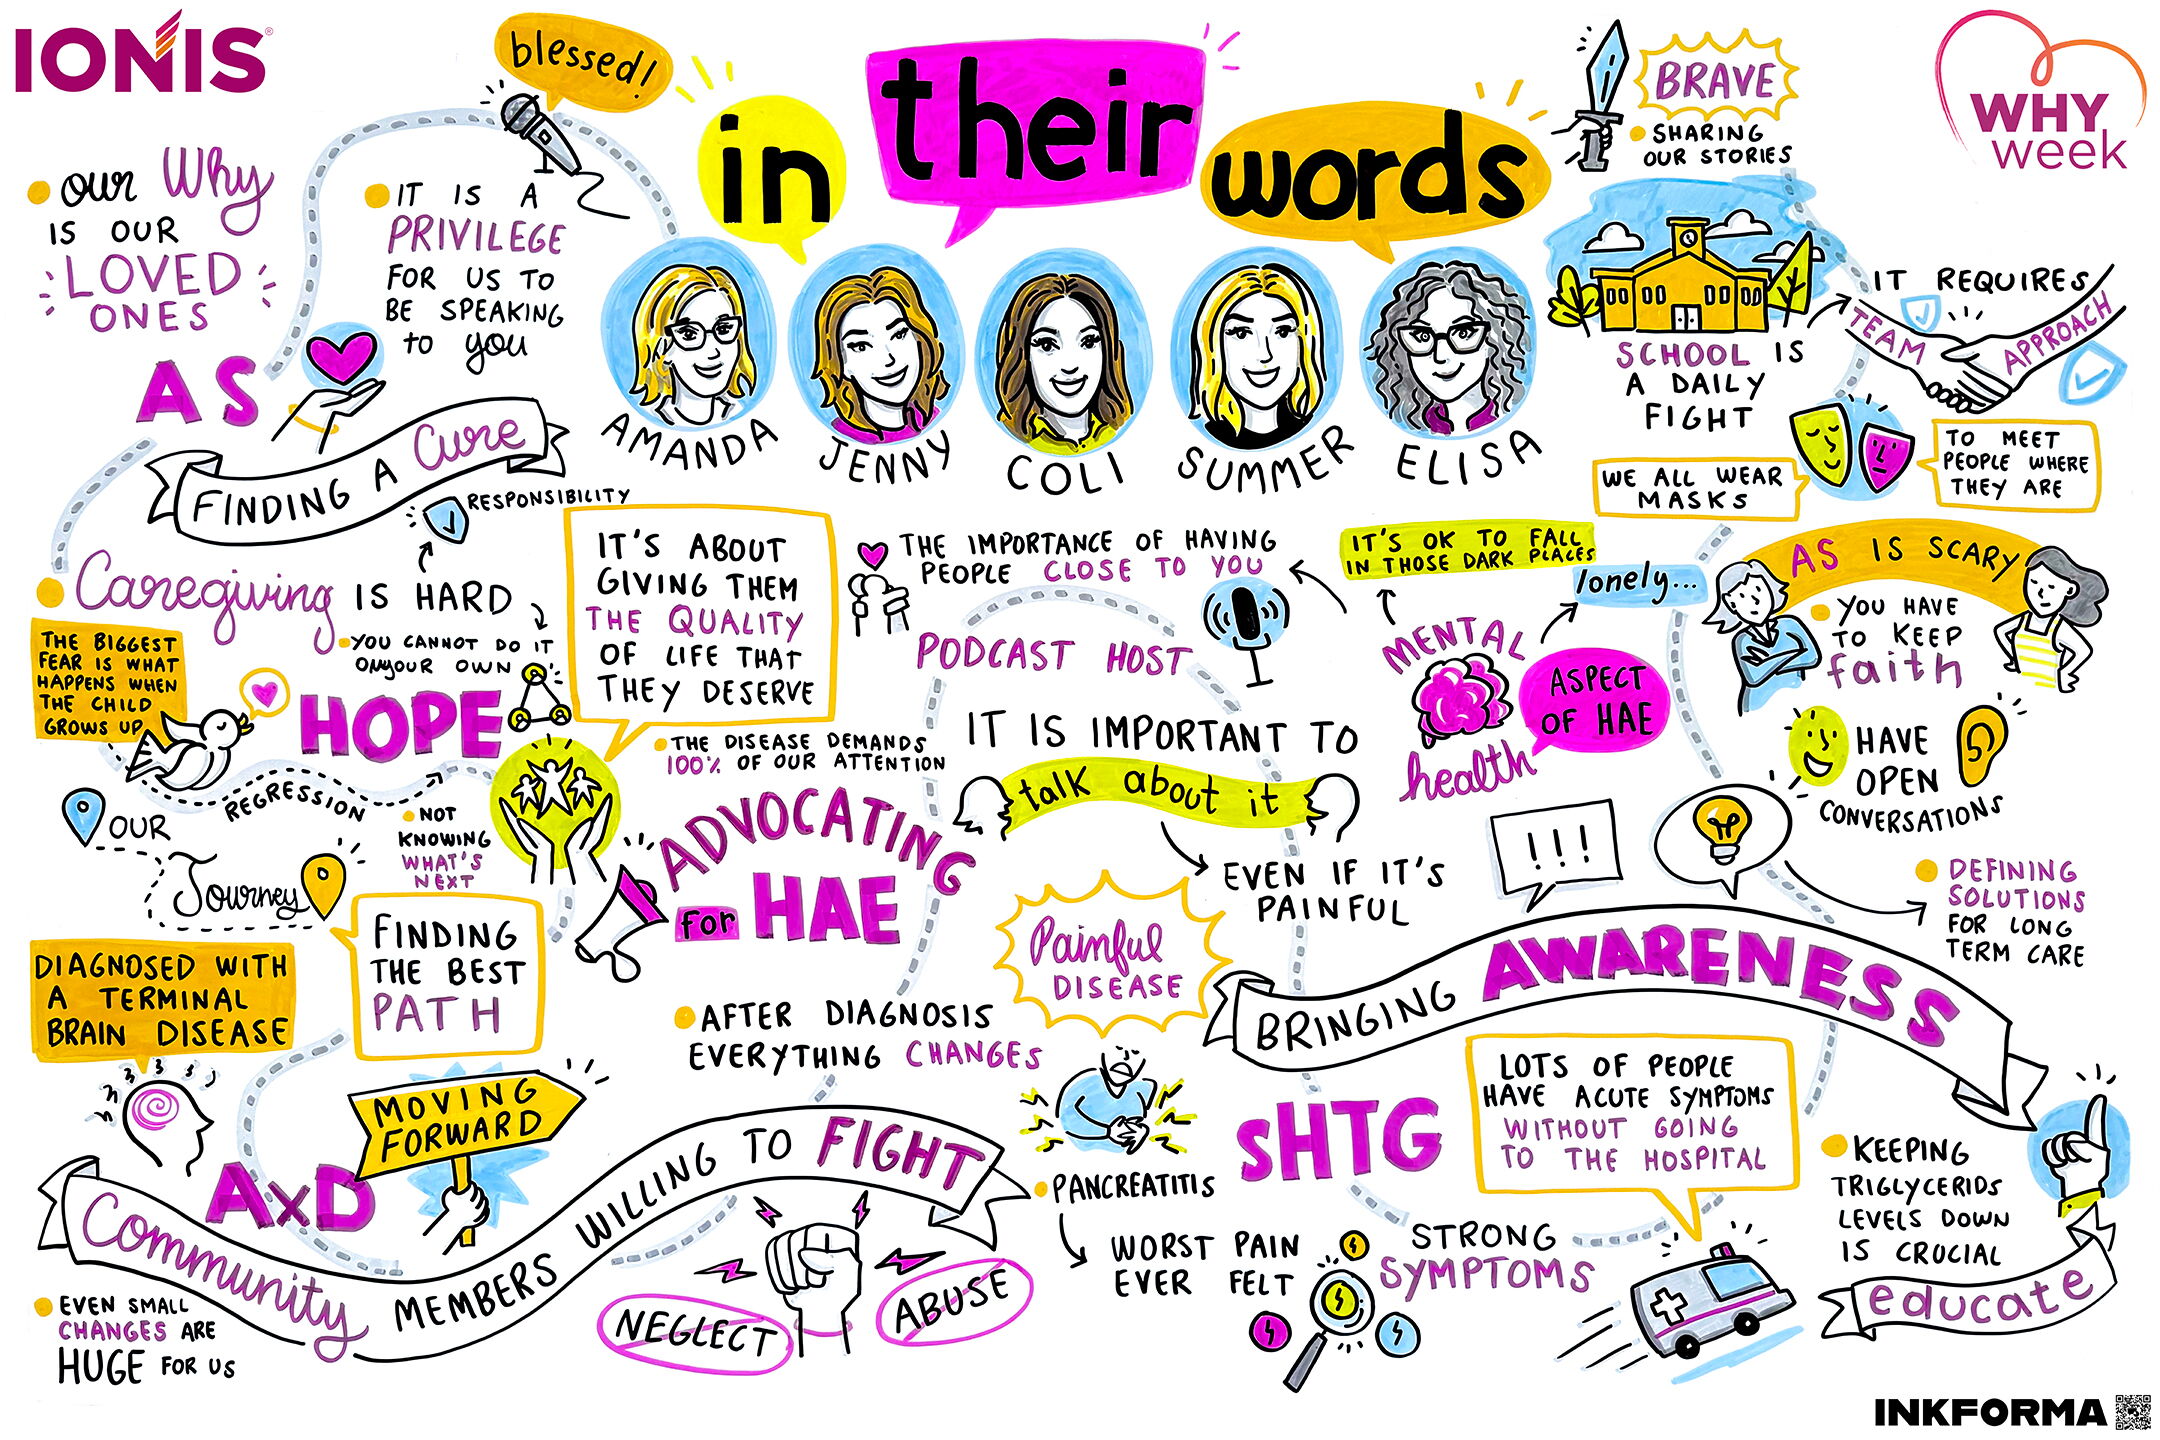 IONIS
blessed!
in
their
words
BRAVE
SHARING
OUR STORIES
WHY
week
our Why
IS OUR
LOVED
ONES
IT IS A
PRIVILEGE
FOR US TO
BE SPEAKING
to you
AMANDA
JENNY
COLI
SUMMER
ELISA
SCHOOL IS
A DAILY
FIGHT
IT REQUIRES
TEAM
APPROACH
WE ALL WEAR
MASKS
TO MEET
PEOPLE WHERE
THEY ARE
AS
FINDING A Cure
RESPONSIBILITY
Caregiving IS HARD
YOU CANNOT DO IT
ON YOUR OWN
THE BIGGEST
FEAR IS WHAT
HAPPENS WHEN
THE CHILD
GROWS UP
HOPE
IT'S ABOUT
GIVING THEM
THE QUALITY
OF LIFE THAT
THEY DESERVE
THE DISEASE DEMANDS
100% OF OUR ATTENTION
THE IMPORTANCE OF HAVING
PEOPLE CLOSE TO YOU
PODCAST HOST
IT'S OK TO FALL
IN THOSE DARK PLACES
lonely...
MENTAL
health
ASPECT
OF HAE
AS IS SCARY
YOU HAVE
TO KEEP
faith
HAVE
OPEN
CONVERSATIONS
IT IS IMPORTANT TO
talk about it
EVEN IF IT'S
PAINFUL
REGRESSION
OUR
Journey
NOT
KNOWING
WHAT'S
NEXT
ADVOCATING
for HAE
!!!
DEFINING
SOLUTIONS
FOR LONG
TERM CARE
FINDING
THE BEST
PATH
DIAGNOSED WITH
A TERMINAL
BRAIN DISEASE
Painful
DISEASE
BRINGING AWARENESS
AFTER DIAGNOSIS
EVERYTHING CHANGES
MOVING
FORWARD
AxD
Community MEMBERS WILLING TO FIGHT
NEGLECT
ABUSE
EVEN SMALL
CHANGES ARE
HUGE FOR US
PANCREATITIS
WORST PAIN
EVER FELT
sHTG
STRONG
SYMPTOMS
LOTS OF PEOPLE
HAVE ACUTE SYMPTOMS
WITHOUT GOING
TO THE HOSPITAL
KEEPING
TRIGLYCERIDS
LEVELS DOWN
IS CRUCIAL
educate
INKFORMA